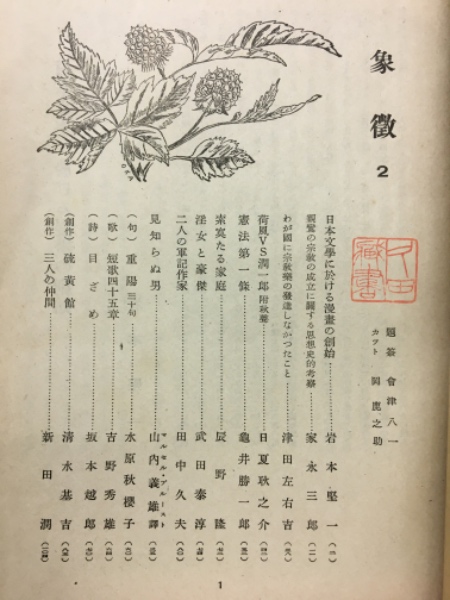 象徴
2
題簽 會津八一
カツト 岡鹿之助
日本文學に於ける漫畫の創始 岩本堅一
親鸞の宗教の成立に關する思想史的考察 家永三郎
わが國に宗教樂の發達しなかつたこと 津田左右吉
荷風VS潤一郎 附秋聲 日夏耿之介
憲法第一條 龜井勝一郎
索寞たる家庭 辰野隆
淫女と豪傑 武田泰淳
二人の軍記作家 田中久夫
見知らぬ男 マルセル・プルースト 山内義雄譯
(句) 重陽 三十句 水原秋櫻子
(歌) 短歌四十五章 吉野秀雄
(詩) 目ざめ 坂本越郎
(創作) 硫黄館 清水基吉
(創作) 三人の仲間 新田潤
1